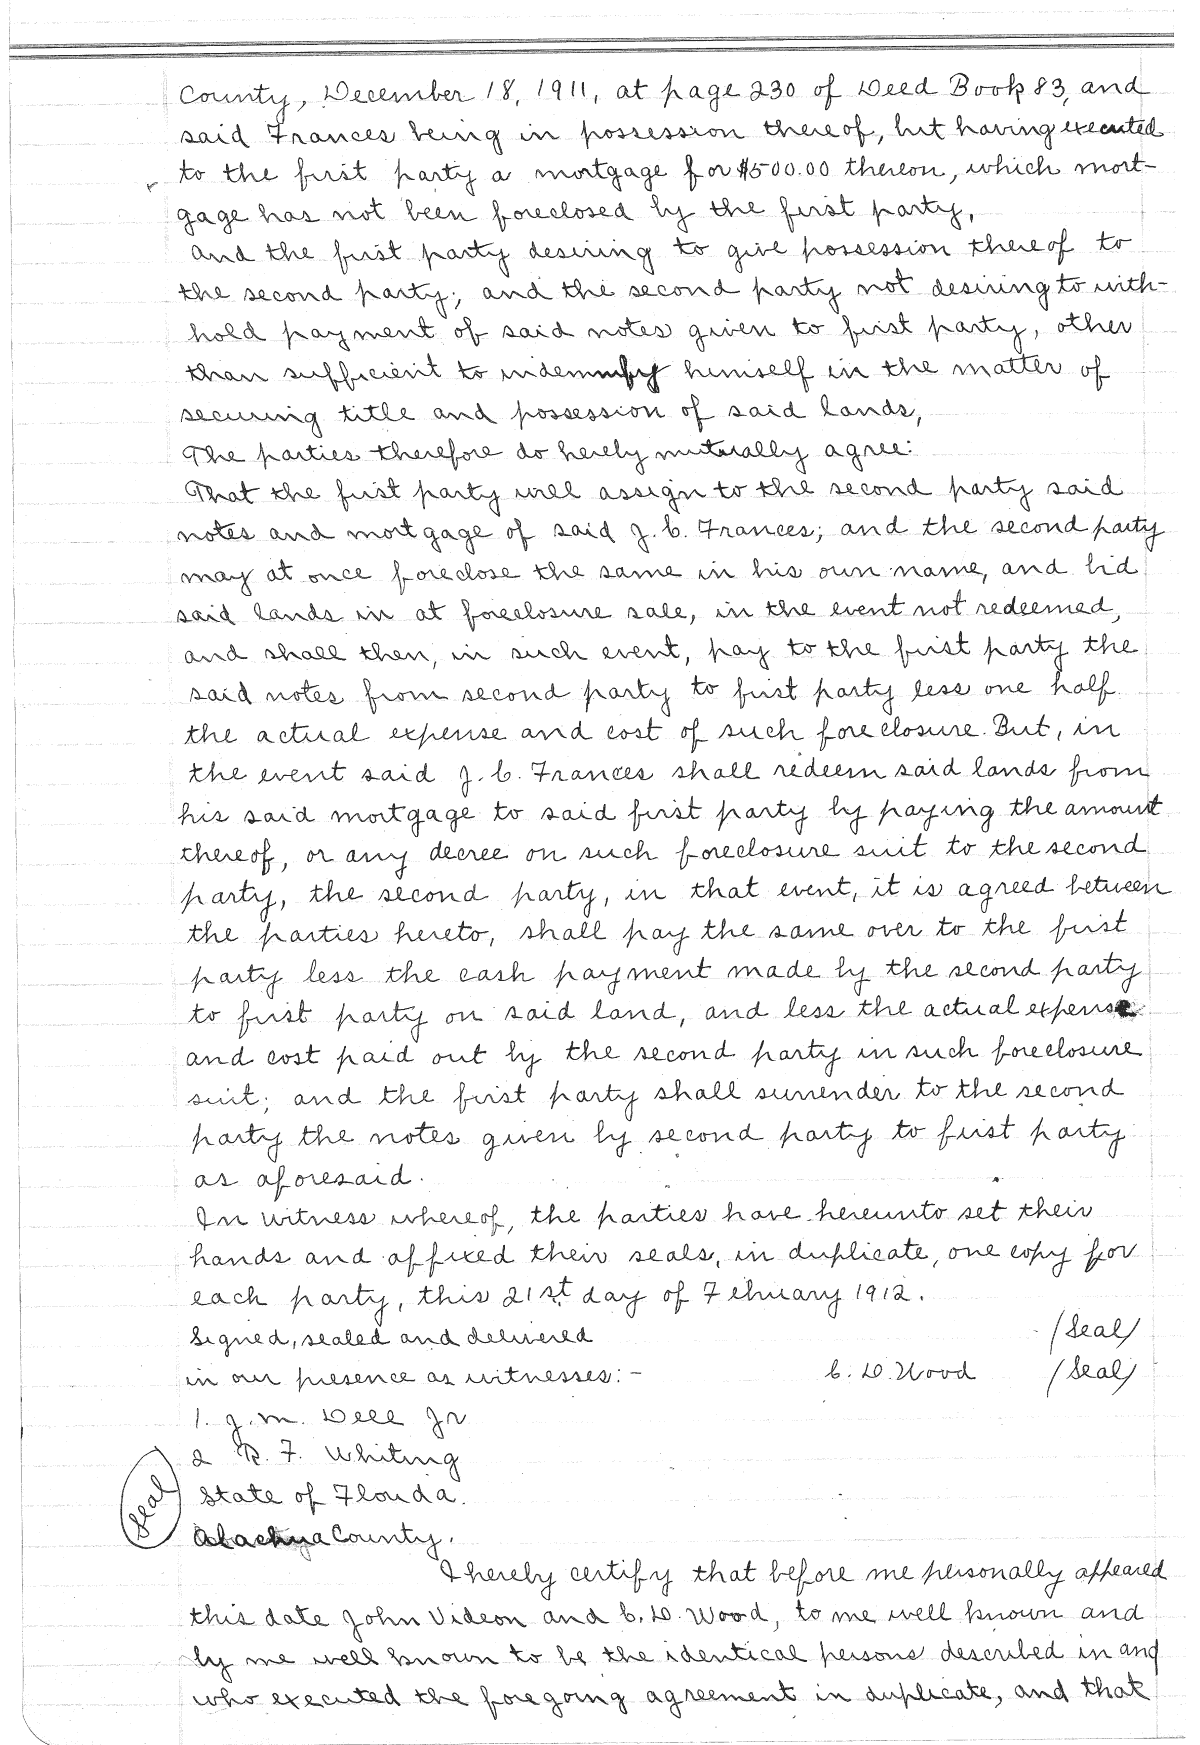 County, December 18, 1911, at page 230 of Deed Book 83, and
said Frances being in possession thereof, but having executed
to the first party a mortgage for $500.00 thereon, which mort-
gage has not been foreclosed by the first party,
And the first party desiring to give possession thereof to
the second party; and the second party not desiring to with-
hold payment of said notes given to first party, other
than sufficient to indemnify himself in the matter of
securing title and possession of said lands,
The parties therefore do hereby mutually agree:
That the first party will assign to the second party said
notes and mortgage of said J. C. Frances; and the second party
may at once foreclose the same in his own name, and bid
said lands in at foreclosure sale, in the event not redeemed,
and shall then, in such event, pay to the first party the
said notes from second party to first party less one half
the actual expense and cost of such foreclosure. But, in
the event said J. C. Frances shall redeem said lands from
his said mortgage to said first party by paying the amount
thereof, or any decree on such foreclosure suit to the second
party, the second party, in that event, it is agreed between
the parties hereto, shall pay the same over to the first
party less the cash payment made by the second party
to first party on said land, and less the actual expense
and cost paid out by the second party in such foreclosure
suit; and the first party shall surrender to the second
party the notes given by second party to first party
as aforesaid.
In witness whereof, the parties have hereunto set their
hands and affixed their seals, in duplicate, one copy for
each party, this 21st day of February 1912.
Signed, sealed and delivered (Seal)
in our presence as witnesses:- C. D. Wood (Seal)
1. J. M. Dell Jr
2 R. F. Whiting
(Seal) State of Florida.
Alachua County.
I hereby certify that before me personally appeared
this date John Videon and C. D. Wood, to me well known and
by me well known to be the identical persons described in and
who executed the foregoing agreement in duplicate, and that